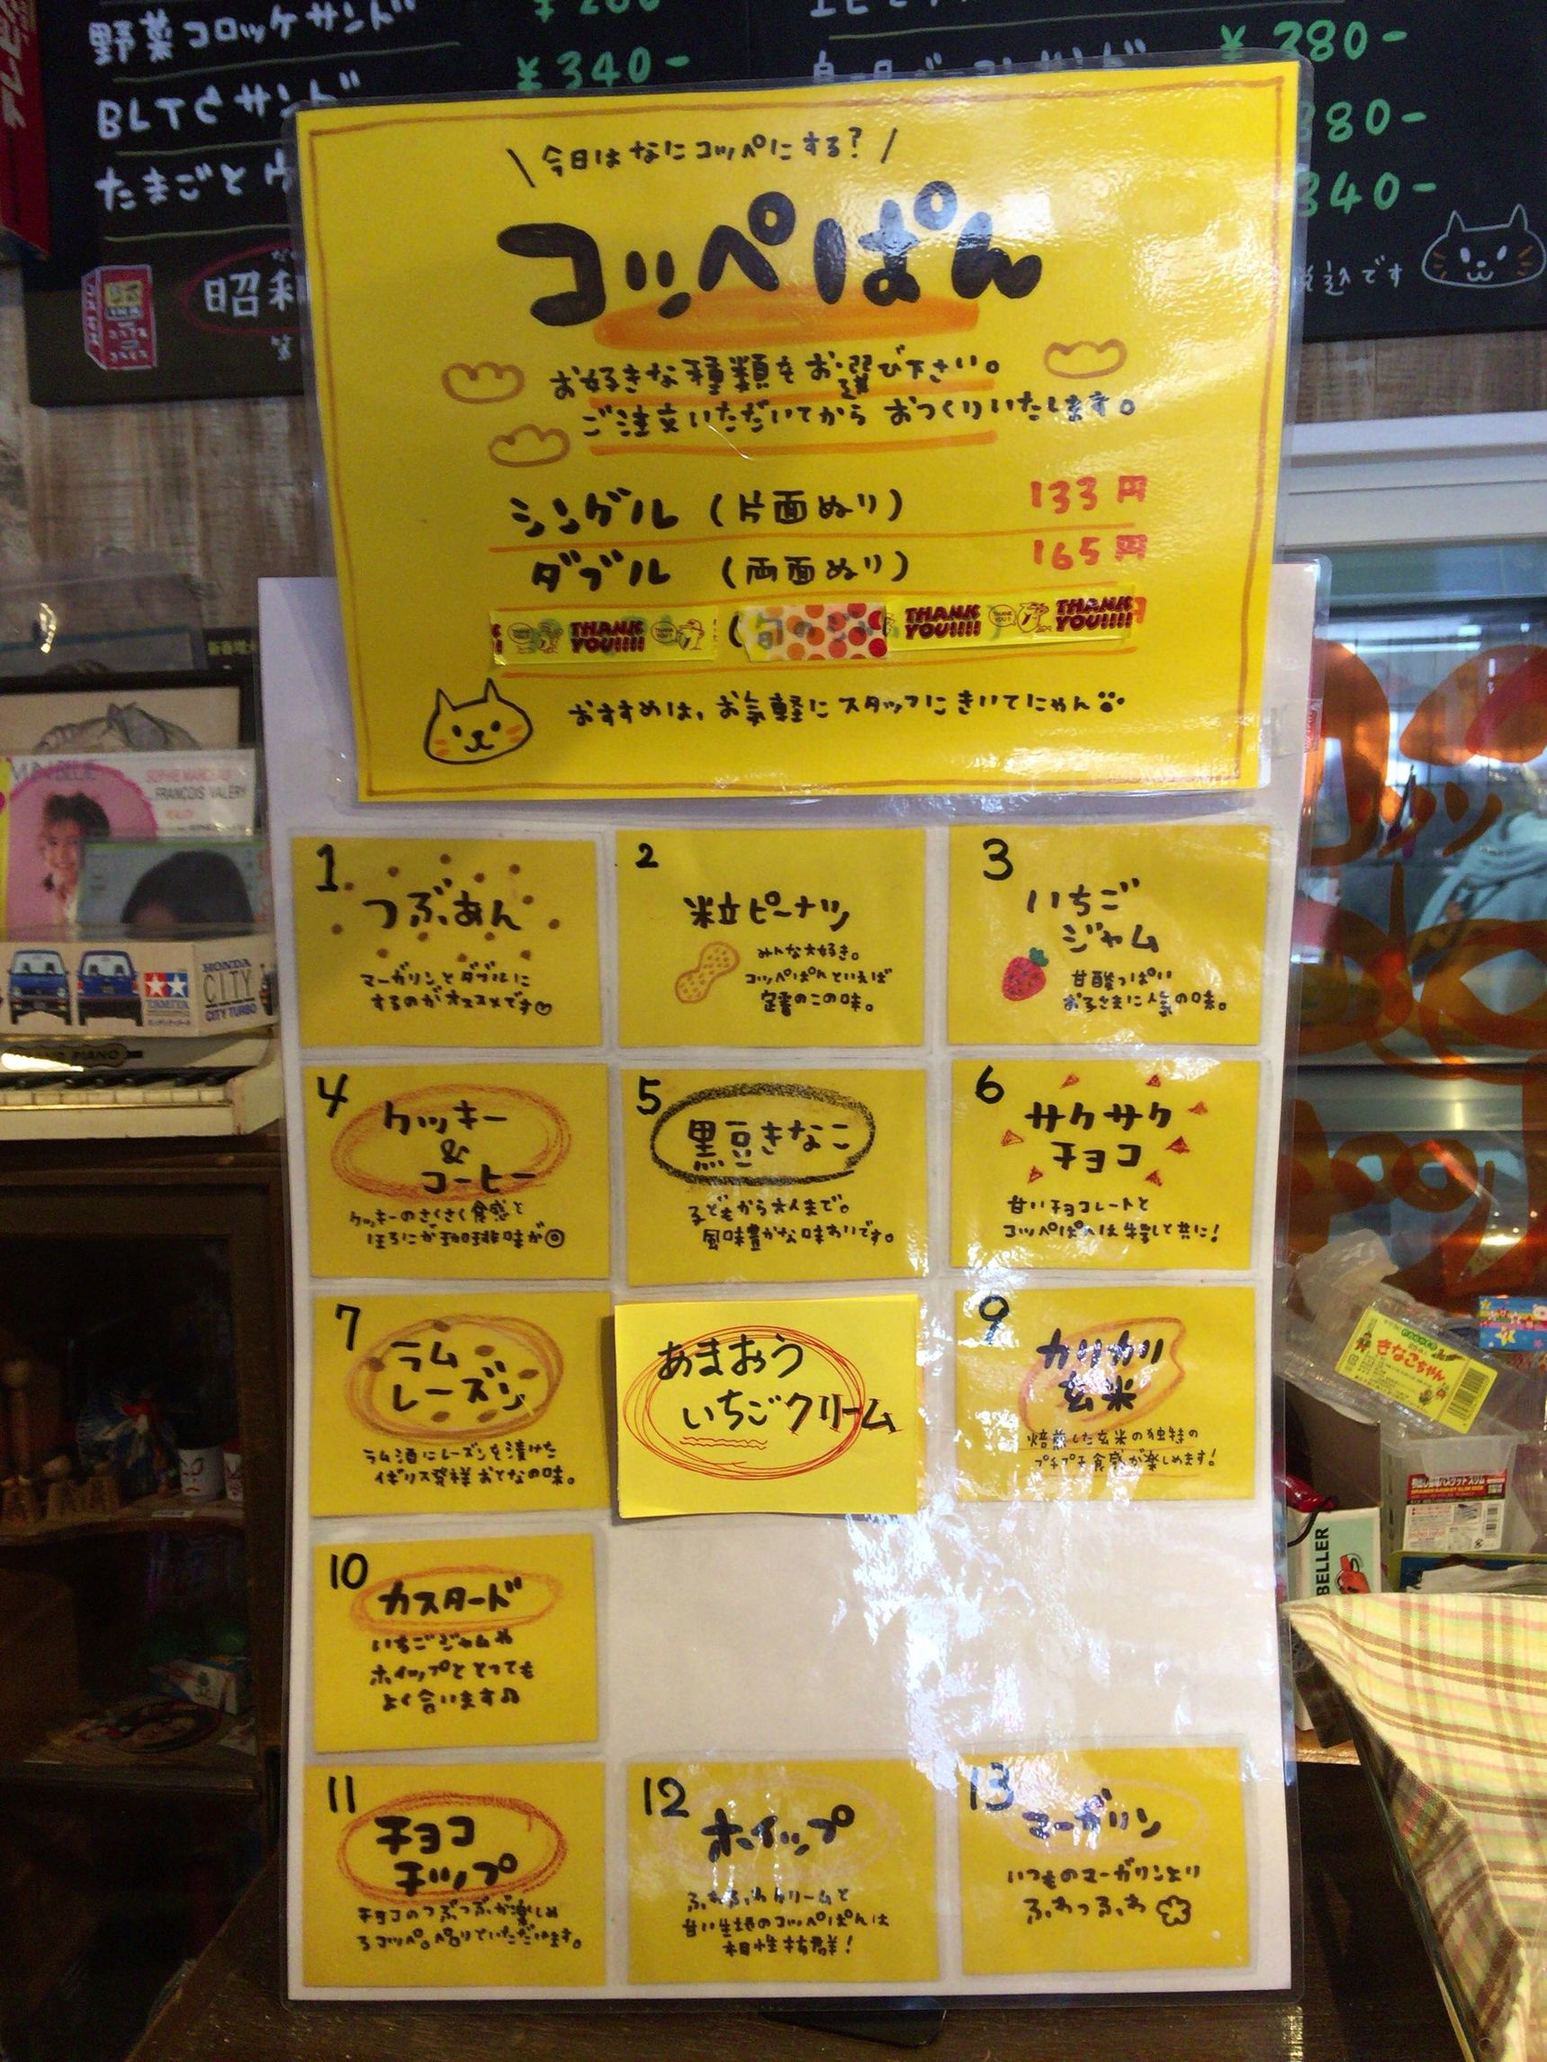 野菜コロッケサンド
¥340-
BLTCサンド
たまごと
昭和
¥380-
380-
340-
税込です
\ 今日はなにコッペにする? /
コッペぱん
お好きな種類をお選び下さい。
ご注文いただいてから おつくりいたします。
シングル (片面ぬり) 133円
ダブル (両面ぬり) 165円
THANK YOU!!!!
THANK YOU!!!!
THANK YOU!!!!
おすすめは、お気軽にスタッフにきいてにゃん
1
つぶあん
マーガリンとダブルに
するのがオススメです♡
2
粒ピーナツ
みんな大好き。
コッペぱんといえば
定番のこの味。
3
いちご
ジャム
甘酸っぱい
お子さまに人気の味。
4
クッキー
&
コーヒー
クッキーのさくさく食感と
ほろにが珈琲味が◎
5
黒豆きなこ
子どもから大人まで。
風味豊かな味わいです。
6
サクサク
チョコ
甘いチョコレートと
コッペぱんは牛乳と共に!
7
ラム
レーズン
ラム酒にレーズンを漬けた
イギリス発祥おとなの味。
あまおう
いちごクリーム
9
カリカリ
玄米
焙煎した玄米の独特の
プチプチ食感が楽しめます!
10
カスタード
いちごジャムや
ホイップととっても
よく合います♫
11
チョコ
チップ
チョコのつぶつぶが楽しめ
るコッペ。ペロリでいただけます。
12
ホイップ
ふわふわクリームと
甘い生地のコッペぱんは
相性抜群!
13
マーガリン
いつものマーガリンより
ふわっふわ
SOPHIE MARCEAU
FRANÇOIS VALERY
TAMIYA
HONDA
CITY
CITY TURBO
きなこちゃん
BELLER